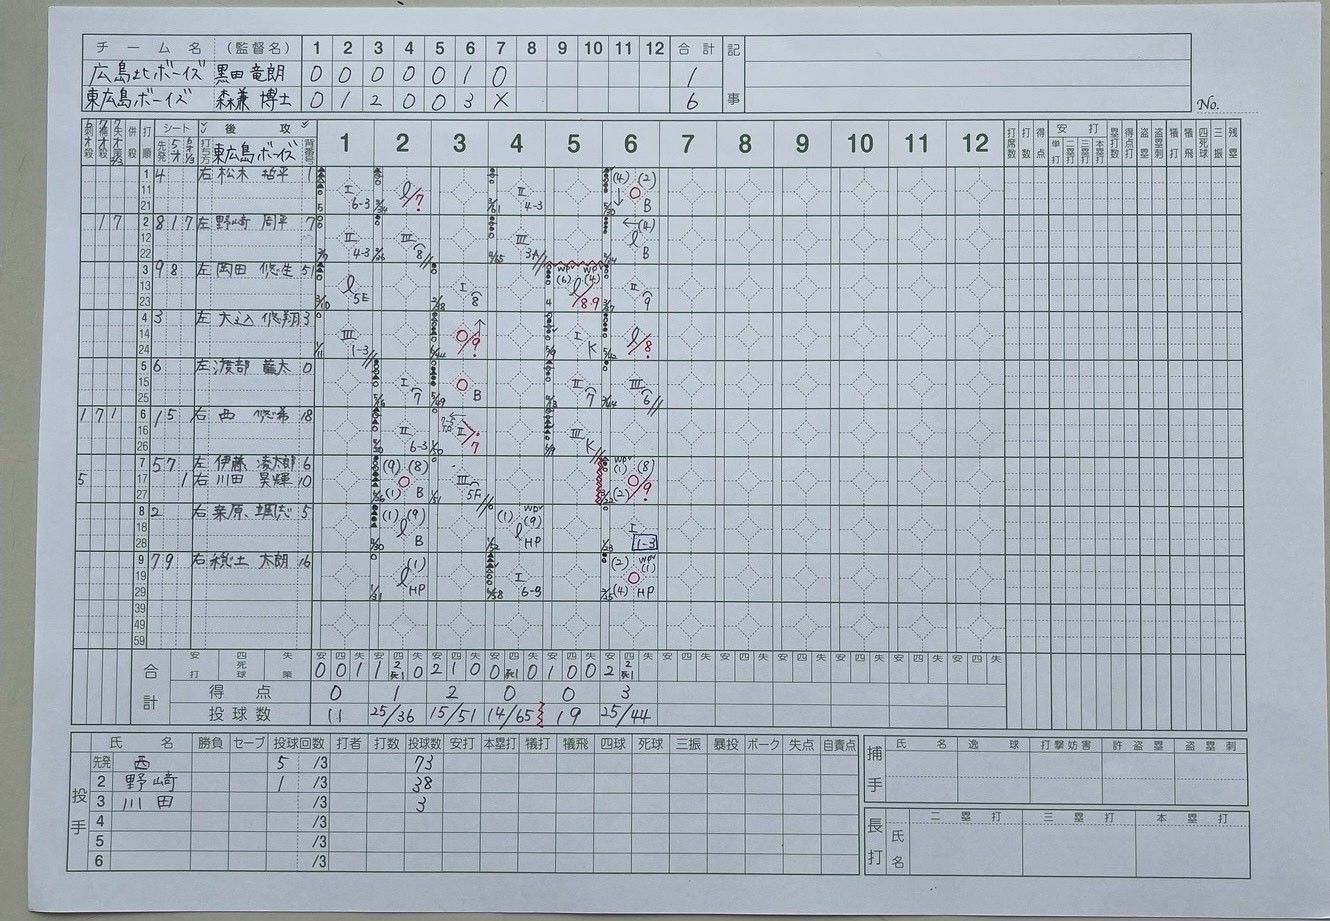 チーム名 (監督名) 1 2 3 4 5 6 7 8 9 10 11 12 合計 記事
広島北ボーイズ 黒田 竜朗 0 0 0 0 0 1 0 1
東広島ボーイズ 森兼 博士 0 1 2 0 0 3 X 6
No.
併殺 打順 シート 後攻 1 2 3 4 5 6 7 8 9 10 11 12 打席数 打数 得点 安打 塁打数 得点打 盗塁 盗塁刺 犠打 犠飛 四死球 三振 残塁
先発 打ち方 東広島ボーイズ 背番号 単打 二塁打 三塁打 本塁打
1 11 21 4 右 松木 1 I 6-3 II 4-3 (4) (2) B
2 12 22 8 1 7 左 野崎 周平 7 III 4-3 III 8 III (4) B
3 13 23 9 8 左 岡田 悠生 51 5E I 8 (6) (4) 8.9 II 9
4 14 24 3 左 3 III 1-3 9 I K 8
5 15 25 6 左 渡部 太 0 I 7 B II 7 III 6
6 16 26 1 5 右 西 悠希 18 II 6-3 II 7 III K
7 17 27 5 7 左 伊藤 凌太郎 6 (9) (8) (1) B III 5F (1) (8) (2) 9
1 右 川田 昊輝 10
8 18 28 2 右 5 (1) (9) B (1) (9) HP I 1-3
9 19 29 7 9 右 太朗 16 (1) HP I 6-3 (2) (1) (4) HP
39 49 59
合計 安打 四死球 失策 0 0 1 1 2 死1 0 2 1 0 0 死1 0 1 0 0 2 2 死1
得点 0 1 2 0 0 3
投球数 11 25/36 15/51 14/65 19 25/44
投手 氏名 勝負 セーブ 投球回数 打者 打数 投球数 安打 本塁打 犠打 犠飛 四球 死球 三振 暴投 ボーク 失点 自責点
先発 西 5 /3 73
2 野崎 1 /3 38
3 川田 /3 3
4 /3
5 /3
6 /3
捕手 氏名 逸球 打撃妨害 許盗塁 盗塁刺
長打 氏名 二塁打 三塁打 本塁打